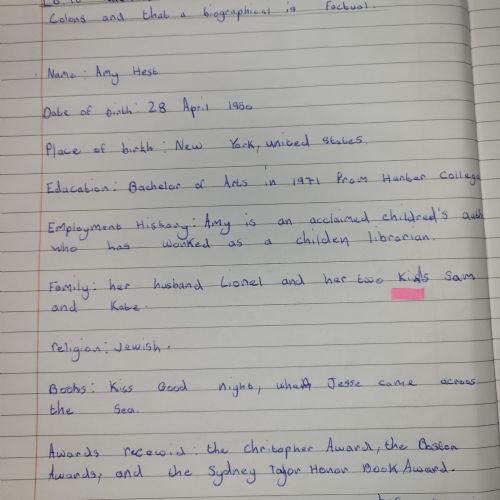 Colons and that a biographical is factual.
Name: Amy Hest
Date of birth: 28 April 1950
Place of birth: New York, united states.
Education: Bachelor of Arts in 1971 From Hunter College
Employment History: Amy is an acclaimed childred's auth
who has worked as a childen librarian.
Family: her husband Lionel and her two Kids Sam
and Kate.
religion: Jewish.
Books: Kiss Good night, when Jesse came across
the Sea.
Awards recewid: the christopher Award, the Boston
Awards, and the Sydney Taylor Honor Book Award.